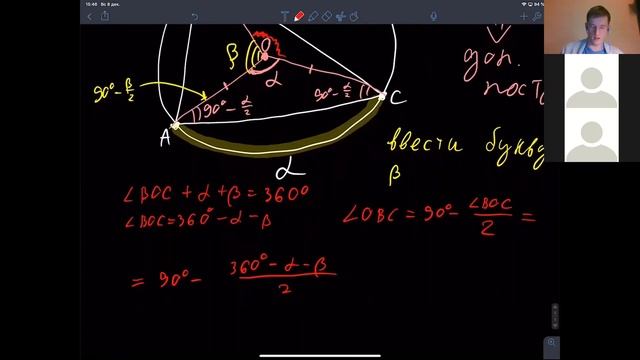 15:46 Вс 8 дек.
94 %
β
O
α
90° - β/2
90° - α/2
90° - α/2
A
C
α
доп.
ввести букву
β
∠BOC + α + β = 360°
∠BOC = 360° - α - β
∠OBC = 90° - ∠BOC/2 =
= 90° - (360° - α - β)/2